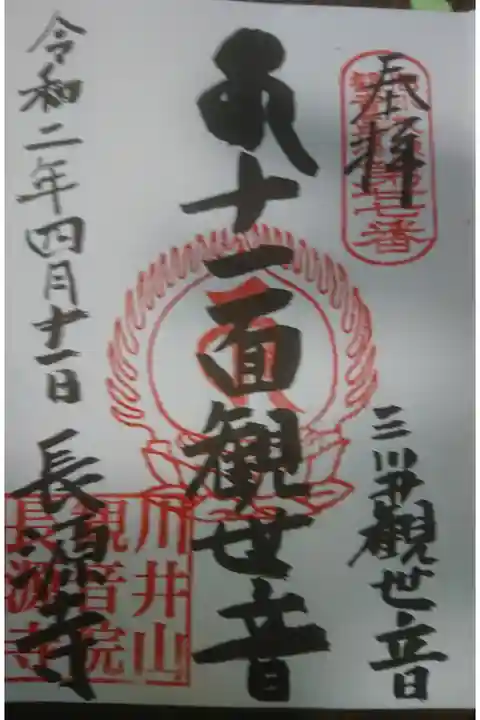 奉拝
第七番
三川井観世音
十一面観世音
令和二年四月十一日
長源寺
川井山
観音院
長源寺